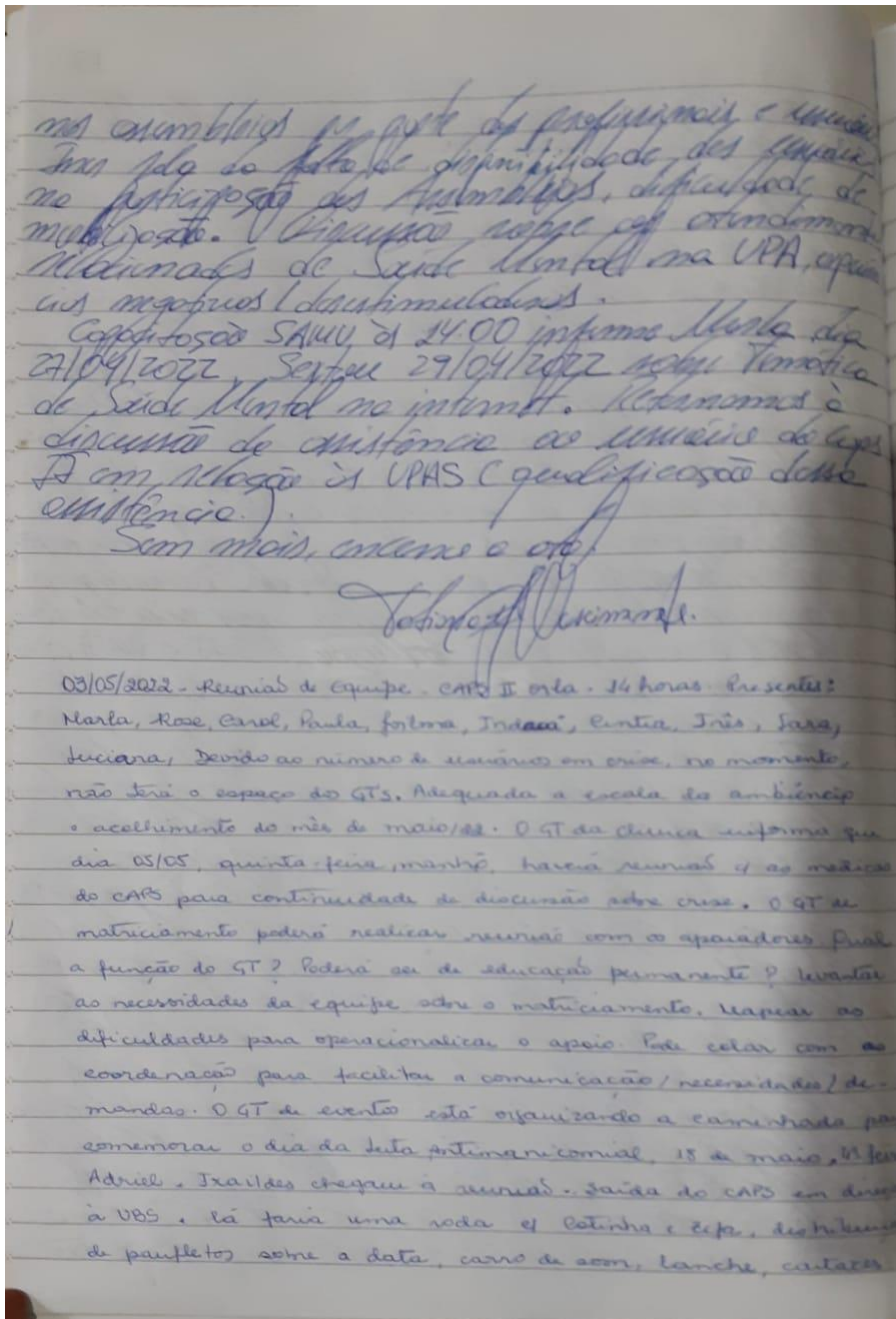 nas assembleias por parte dos profissionais e usuários
fala da falta de disponibilidade dos usuários
na participação das Assembleias, dificuldade de
mobilização. Discussão sobre os atendimentos
relacionados de Saúde Mental na UPA,
negativos / desestimuladores.
Capacitação SAMU às 14:00 informe Marla dia
27/04/2022, Sexta 29/04/2022 sobre Temática
de Saúde Mental na internet. Retornamos à
discussão de assistência ao usuário do Caps
II em relação às UPAS (qualificação dessa
assistência.)
Sem mais, encerro a ata.
03/05/2022 - Reunião de Equipe - CAPS II orla. 14 horas. Presentes:
Marla, Rose, Carol, Paula, Indaiá, Cintia, Inês, Sara,
Luciana, Devido ao número de usuários em crise, no momento,
não terá o espaço dos GTs. Adequada a escala da ambiência
e acolhimento do mês de maio/22. O GT da clínica informa que
dia 05/05, quinta-feira, manhã, haverá reunião c/ as médicas
do CAPS para continuidade de discussão sobre crise. O GT de
matriciamento poderá realizar reunião com os apoiadores Qual
a função do GT? Poderá ser de educação permanente? levantar
as necessidades da equipe sobre o matriciamento. Mapear as
dificuldades para operacionalizar o apoio. Pode colar com a
coordenação para facilitar a comunicação / necessidades / de-
mandas. O GT de evento está organizando a caminhada pa
comemorar o dia da luta antimanicomial, 18 de maio, 4ª feira
Adriel. Ixaildes chegou à reunião. Saída do CAPS em direç
à UBS. lá faria uma roda c/ Cotinha e Zefa, distribuiç
de panfletos sobre a data, carro de som, lanche, cartazes